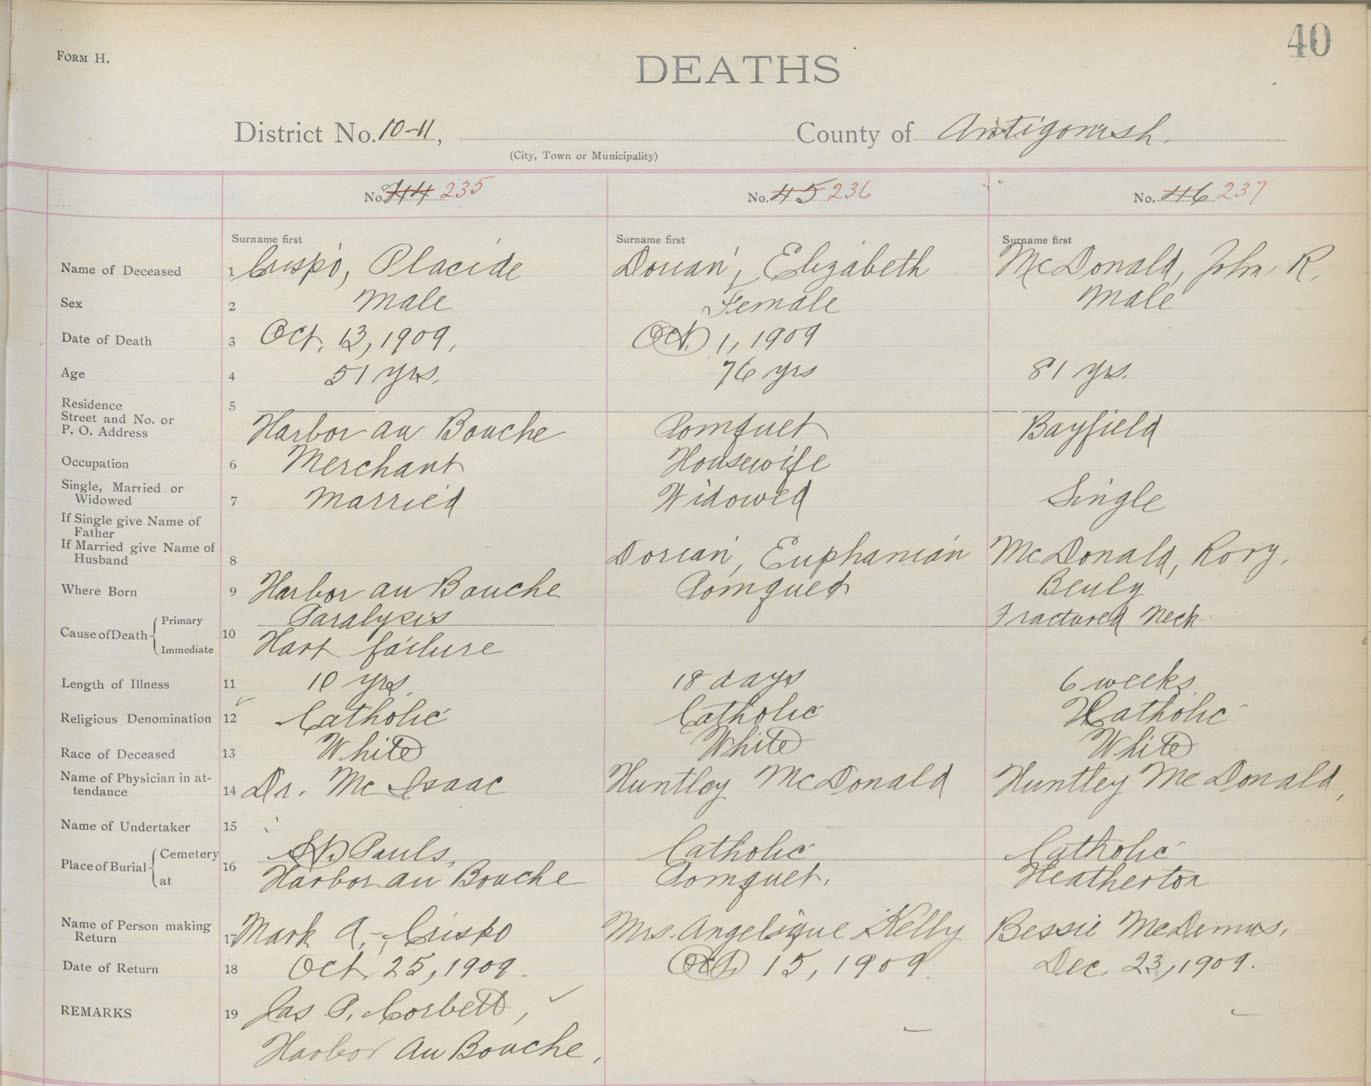 40
FORM H.
DEATHS
District No. 10-11, County of Antigonish.
(City, Town or Municipality)
No. 44 235 No. 45 236 No. 46 237
Surname first Surname first Surname first
Name of Deceased 1 Crispo, Placide Dorian, Elizabeth McDonald, John R.
Sex 2 Male Female Male
Date of Death 3 Oct. 13, 1909. Oct. 1, 1909
Age 4 51 yrs. 76 yrs 81 yrs.
Residence 5
Street and No. or
P. O. Address Harbor au Bouche Pomquet Bayfield
Occupation 6 Merchant Housewife
Single, Married or
Widowed 7 Married Widowed Single
If Single give Name of
Father
If Married give Name of
Husband 8 Dorian, Euphanian McDonald, Rory.
Where Born 9 Harbor au Bouche Pomquet Beuly
Cause of Death Primary 10 Paralysis Fractured Neck
Immediate Hart failure
Length of Illness 11 10 yrs. 18 days 6 weeks
Religious Denomination 12 Catholic Catholic Catholic
Race of Deceased 13 White White White
Name of Physician in at-
tendance 14 Dr. Mc Isaac Huntley McDonald Huntley McDonald,
Name of Undertaker 15
Place of Burial Cemetery 16 St. Pauls, Catholic Catholic
at Harbor au Bouche Pomquet. Heatherton
Name of Person making
Return 17 Mark A. Crispo Mrs. Angelique Kelly Bessie
Date of Return 18 Oct. 25, 1909. Oct. 15, 1909. Dec. 23, 1909.
REMARKS 19 Jas P. Corbett,
Harbor Au Bouche,